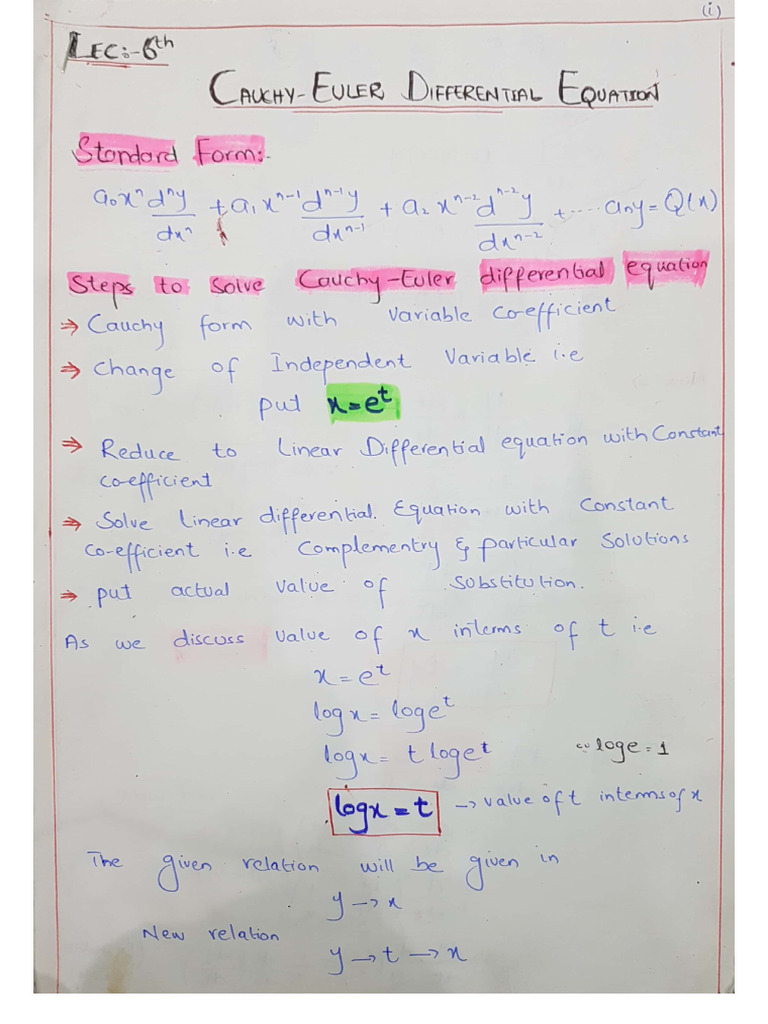 (i)
LEC:-6th
CAUCHY-EULER DIFFERENTIAL EQUATION
Standard Form:-
a₀xⁿ dⁿy/dxⁿ + a₁xⁿ⁻¹ dⁿ⁻¹y/dxⁿ⁻¹ + a₂xⁿ⁻² dⁿ⁻²y/dxⁿ⁻² + ..... aₙy = Q(x)
Steps to Solve Cauchy-Euler differential equation
⇒ Cauchy form with Variable Co-efficient
⇒ Change of Independent Variable i.e
put x=eᵗ
⇒ Reduce to Linear Differential equation with Constant
co-efficient
⇒ Solve linear differential. Equation with Constant
Co-efficient i.e Complementry & particular Solutions
⇒ put actual value of Substitution.
As we discuss value of x interms of t i.e
x = eᵗ
logx = logeᵗ
logx = t logeᵗ ∵ loge = 1
logx = t → value of t interms of x
The given relation will be given in
y → x
New relation
y → t → x